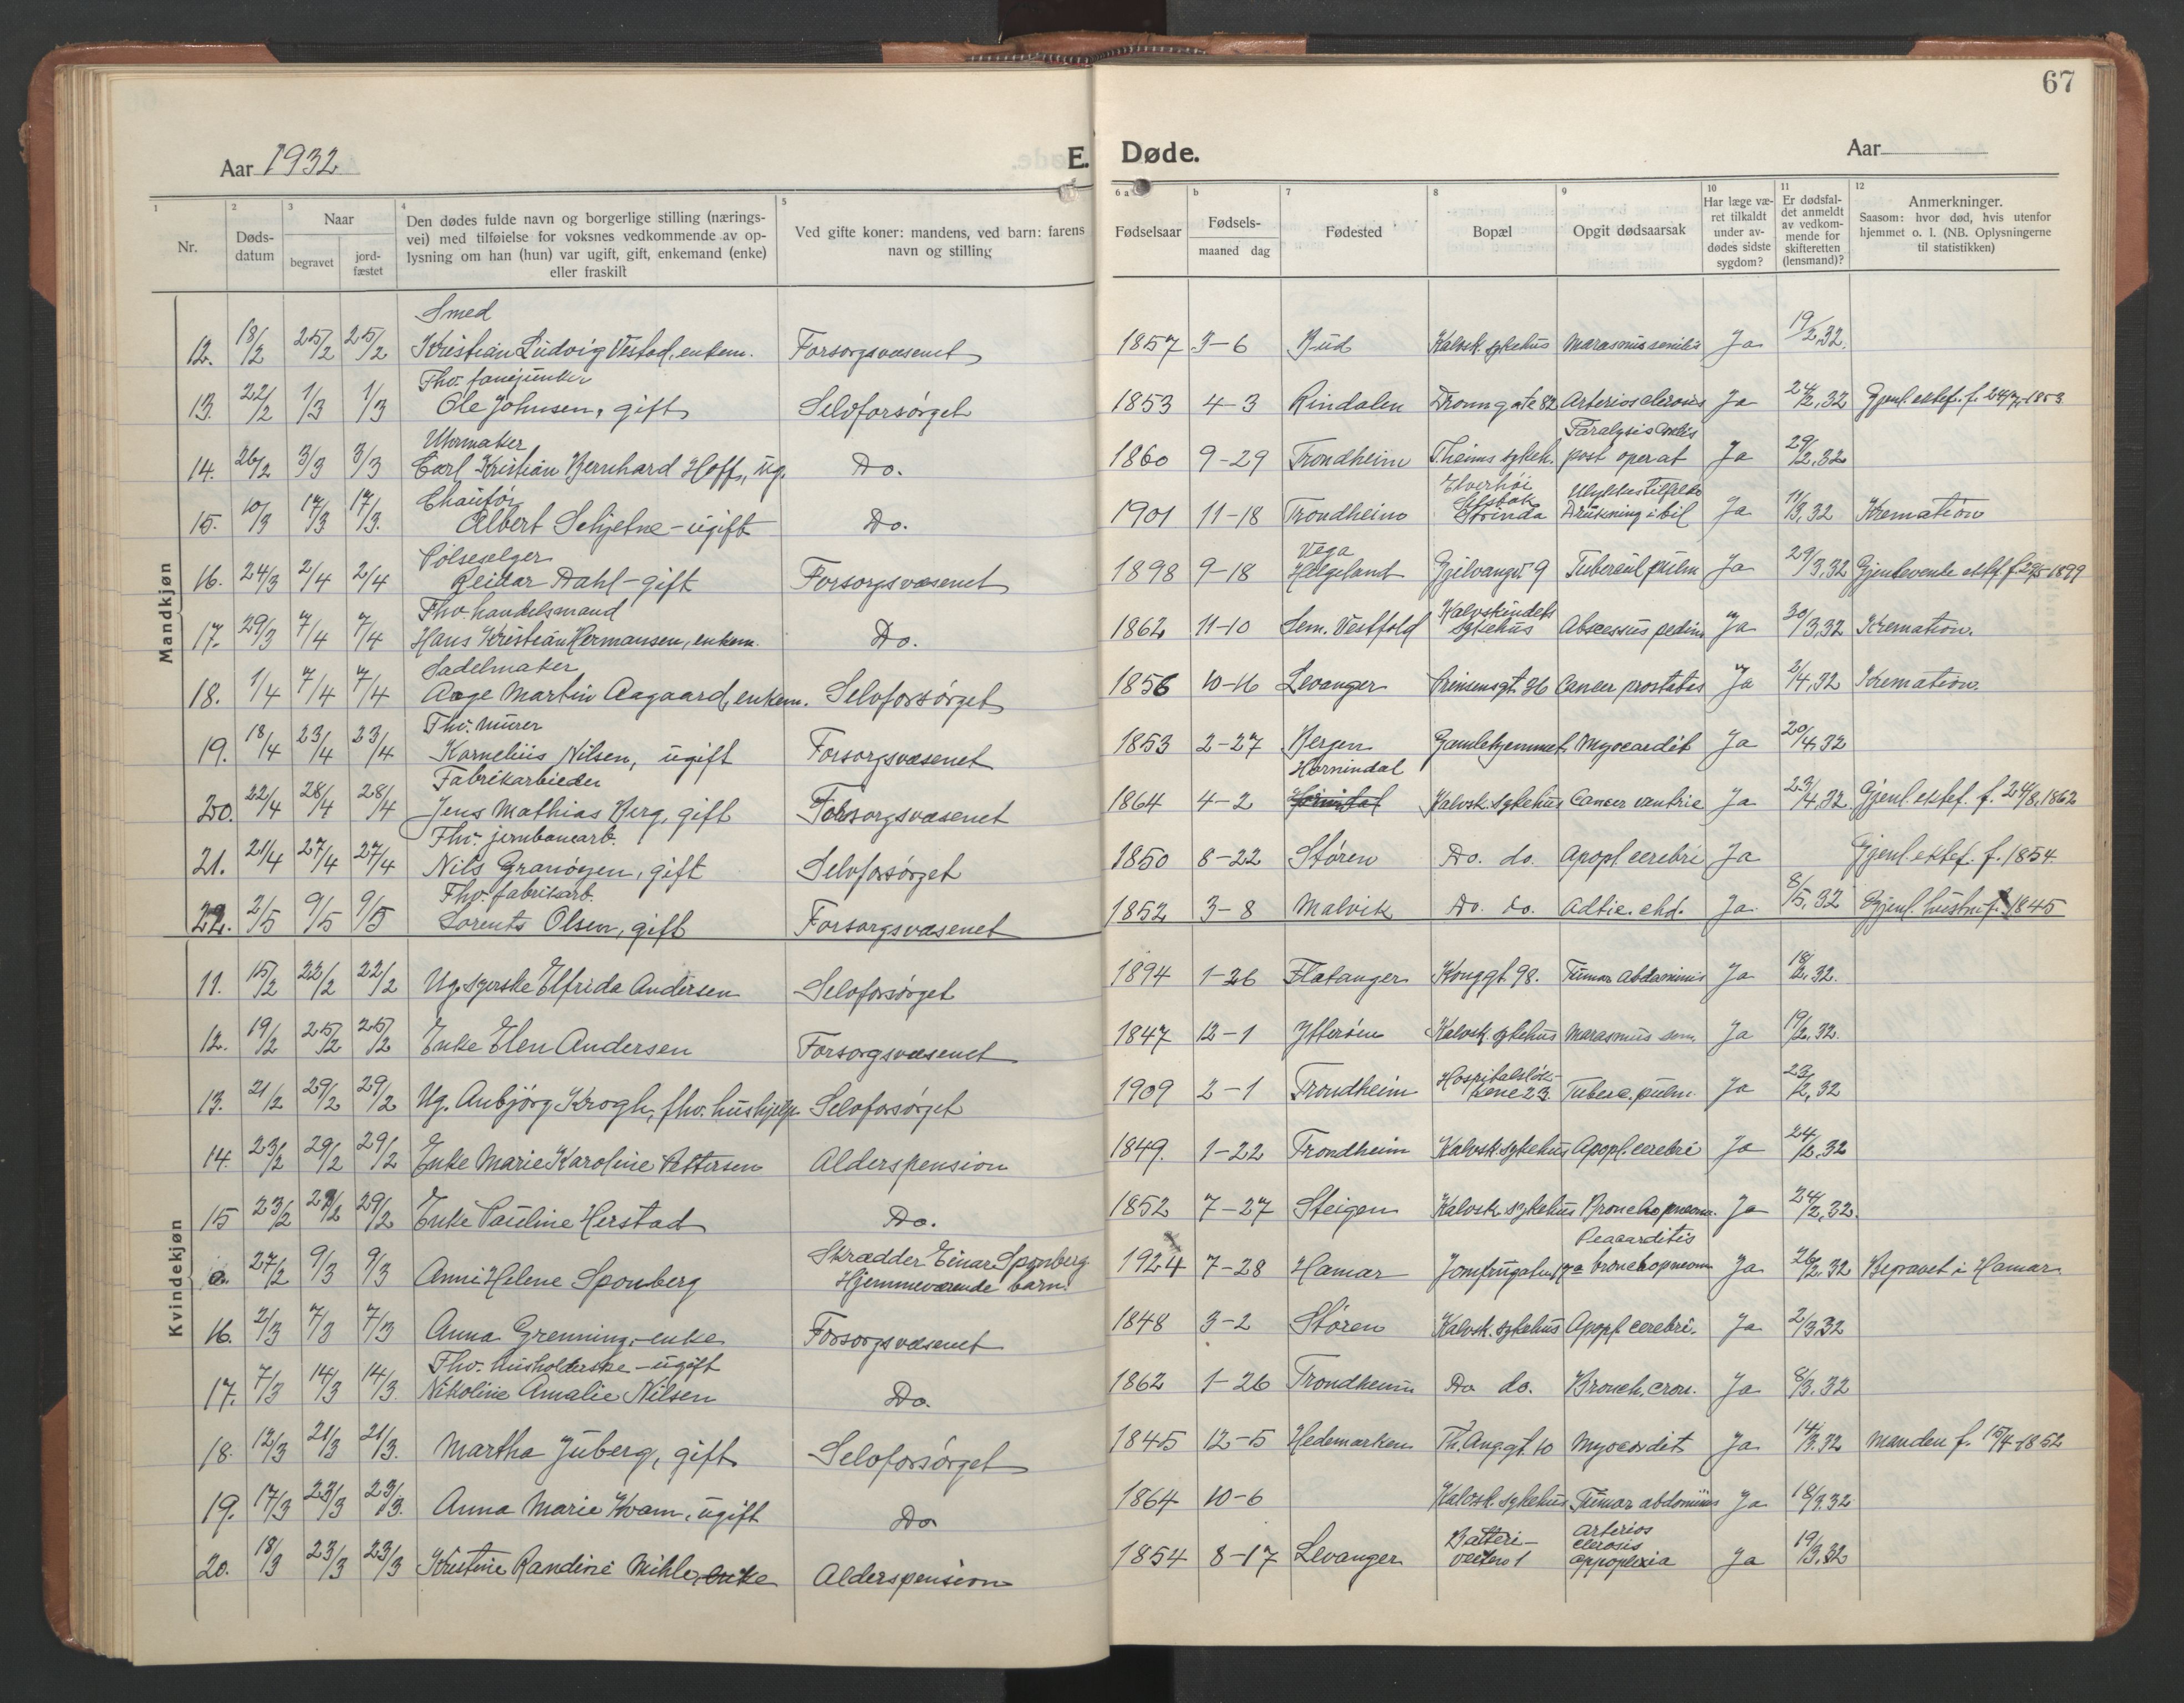 67
Aar 1932
E. Døde.
Aar
1 2 3 4 5 6 a b 7 8 9 10 11 12
Nr.
Døds-datum
Naar
begravet
jord-fæstet
Den dødes fulde navn og borgerlige stilling (nærings-
vei) med tilføielse for voksnes vedkommende av op-
lysning om han (hun) var ugift, gift, enkemand (enke)
eller fraskilt
Ved gifte koner: mandens, ved barn: farens
navn og stilling
Fødselsaar
Fødsels-
maaned dag
Fødested
Bopæl
Opgit dødsaarsak
Har læge væ-
ret tilkaldt
under av-
dødes sidste
sygdom?
Er dødsfal-
det anmeldt
av vedkom-
mende for
skifteretten
(lensmand)?
Anmerkninger.
Saasom: hvor død, hvis utenfor
hjemmet o. l. (NB. Oplysningerne
til statistikken)
Mandkjøn
Smed
12. 18/2 25/2 25/2 Kristian Ludvig Vestad, enkem. Forsorgsvæsenet 1857 3-6 Bud Kalvsk. sykehus Marasmus senilis Ja 19/2,32.
Fhv. fanejunker
13. 22/2 1/3 1/3 Ole Johnsen, gift Selvforsørget 1853 4-3 Rindalen Dronn gate 82 Arteriosclerosis Ja 24/2,32 Gjenl. ektef. f. 1853
Uhrmaker
14. 26/2 3/3 3/3 Carl Kristian Bernhard Hoff, ug. Do. 1860 9-29 Trondheim T.heims sykeh. Paralysis cordis post operat Ja 29/2,32
Chaufør
15. 10/3 17/3 17/3. Albert Schjetne - ugift Do. 1901 11-18 Trondheim Elverhøi Selsbak Strinda Ulykkestilfelde Drukning i bil Ja 11/3,32 Kremation
Pølseselger
16. 24/3 2/4 2/4 Reidar Dahl - gift Forsorgsvæsenet 1898 9-18 Vega Helgeland Gyllvangv 9 Tubercul pulm Ja 29/3,32 Gjenlevende ektef f 1899
Fhv. handelsmand
17. 29/3 7/4 7/4 Hans Kristian Hermansen, enkem. Do. 1862 11-10 Sem. Vestfold Kalvskindets Sykehus Abscessus pedis Ja 30/3,32 Kremation.
Sadelmaker
18. 1/4 7/4 7/4 Aage Martin Aagaard, enkem. Selvforsørget 1856 10-16 Levanger Prinsensgt. 36 Cancer prostates Ja 2/4,32 Kremation.
Fhv. murer
19. 18/4 23/4 23/4 Kornelius Nilsen, ugift Forsorgsvæsenet 1853 2-27 Bergen Gamlehjemmet Myocardit Ja 20/4,32
Fabrikarbeider
20. 22/4 28/4 28/4 Jens Mathias Berg, gift Forsorgsvæsenet 1864 4-2 Hornindal Kalvsk. sykehus Cancer ventric Ja 23/4,32 Gjenl. ektef. f. 24/8, 1862
Fhv. jernbanearb.
21. 21/4 27/4 27/4 Nils Granøyen, gift Selvforsørget 1850 8-22 Støren Do. do. Apopl cerebri Ja Gjenl. ektef. f. 1854
Fhv. fabrikarb.
22. 2/5 9/5 9/5 Lorents Olsen, gift Forsorgsvæsenet 1852 3-8 Malvik Do. do. Ja. 8/5,32 Gjenl. hustru f. 1845
Kvindekjøn
11. 15/2 22/2 22/2 Ug. syerske Elfrida Andersen Selvforsørget 1894 1-26 Flatanger Konggt 98. Tumor abdominis Ja 18/2,32.
12. 19/2 25/2 25/2 Enke Elen Andersen Forsorgsvæsenet 1847 12-1 Ytterøen Kalvsk. sykehus Marasmus sen. Ja 19/2,32.
13. 21/2 29/2 29/2 Ug. Anbjørg Krogh, fhv. hushjelp Selvforsørget 1909 2-1 Trondheim Hospitalsløkkene 23. Tuberc. pulm. Ja 23/2,32
14. 23/2 29/2 29/2 Enke Marie Karoline Pettersen Alderspension 1849. 1-22 Trondheim Kalvsk. sykehus Apopl. cerebri Ja 24/2,32
15 23/2 29/2 29/2 Enke Pauline Herstad Do. 1852 7-27 Steigen Kalvsk sykehus Bronchopneum. Ja 24/2,32.
a. 27/2 9/3 9/3 Anni Helene Sponberg Skrædder Einar Sponberg Hjemmeværende barn. 1924 7-28 Hamar Jomfrugaten bronchopneum Ja 26/2,32 Begravet i Hamar
16. 2/3 7/3 7/3 Anna Grenning, - enke Forsorgsvæsenet 1848 3-2 Støren Kalvsk. sykehus Apopl. cerebri. Ja 2/3,32
Fhv. husholderske - ugift
17. 7/3 14/3 14/3. Nikoline Amalie Nilsen Do. 1862 1-26 Trondheim Do do. Bronch. cron. Ja 8/3,32
18. 12/3 21/3 21/3. Martha Juberg, gift. Selvforsørget 1845 12-5 Hedemarken Th. Anggt. 10 Myocardit Ja 14/3.32 Manden f. 15/4-1852
19. 17/3 23/3 23/3. Anna Marie Kvam, ugift Do 1864 10-6 Kalvsk. sykehus Tumor abdominis Ja 18/3.32
20. 18/3 23/3 23/3 Kristine Randine Mihle, enke Alderspension 1854 8-17 Levanger Batteriveien 1 Arteriosclerosis appoplexia Ja 19/3,32